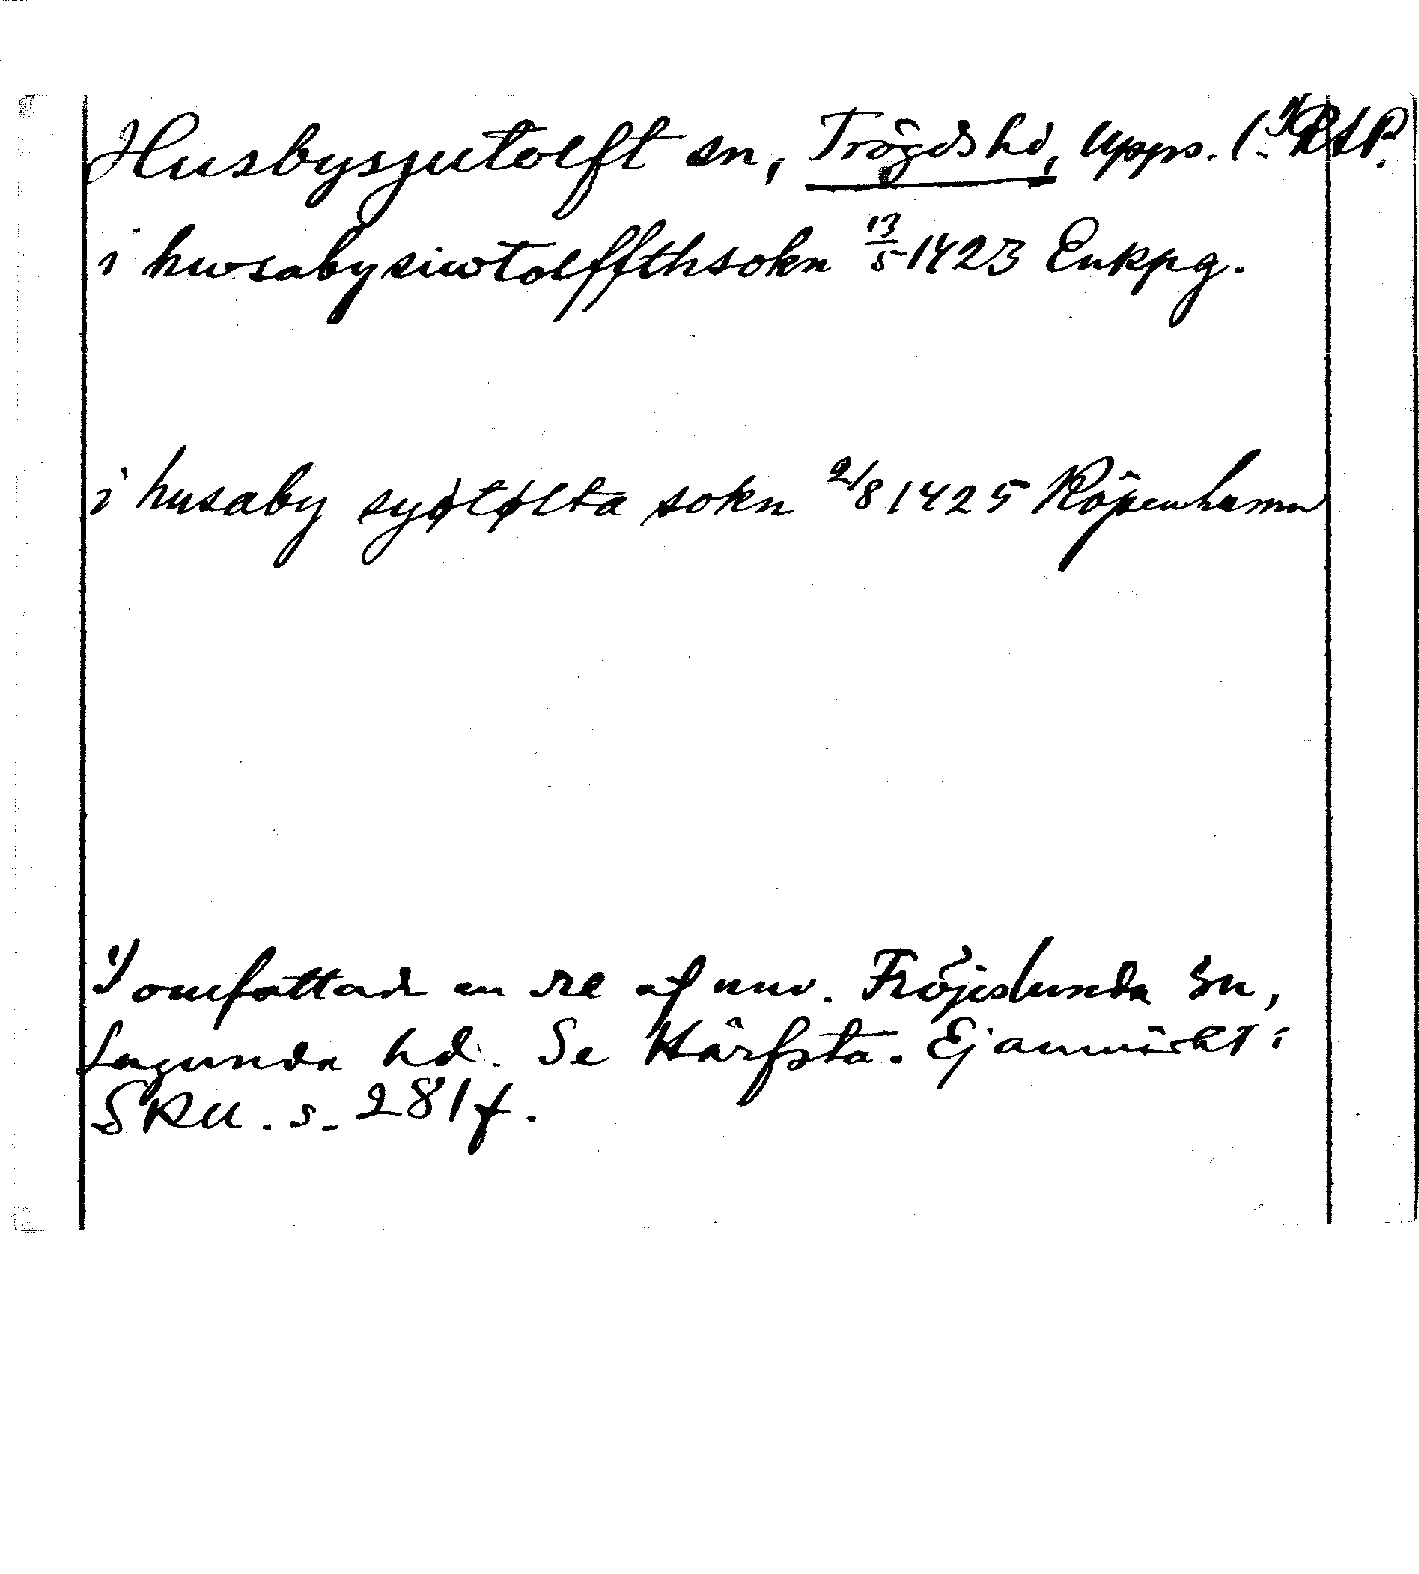 Husbysjutolft sn, Trögds hd, Upps. l.
i hwsabysiwtolffthsokn 13/5 1423 Enkpg.
i husaby syøtøltta sokn 2/8 1425 Köpenhamn
1) omfattade en del af nuv. Fröjslunda sn,
Lagunda hd. Se Härfsta. Ej anmärkt i
SRU. s. 281 f.